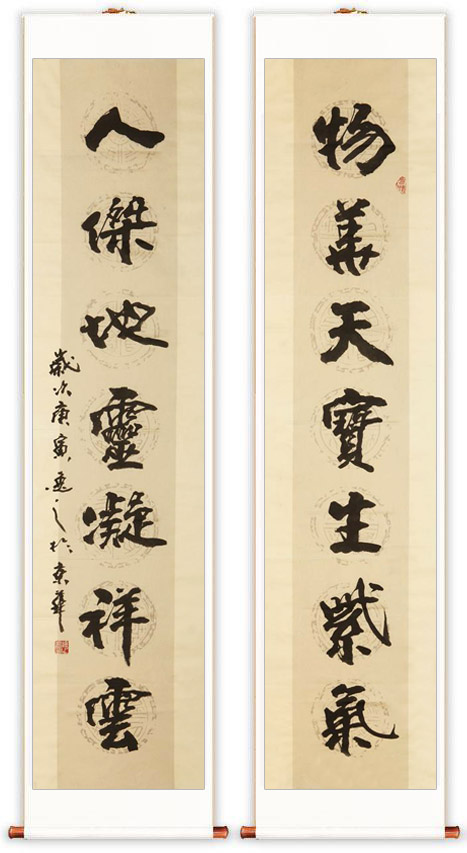 物華天寶生紫氣
人傑地靈凝祥雲
歲次庚寅逸之於京華